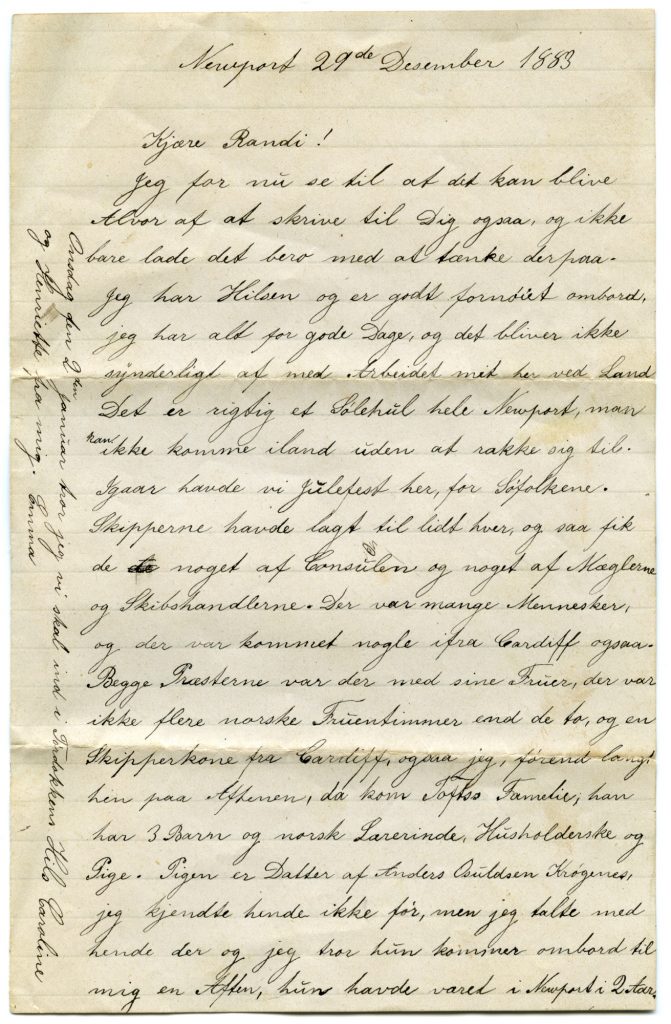 Newport 29de Desember 1883
Kjære Randi!
Jeg for nu se til at det kan blive
Alvor af at skrive til Dig ogsaa, og ikke
bare lade det bero med at tænke derpaa.
Jeg har Hilsen og er godt fornöiet ombord,
jeg har alt for gode Dage, og det bliver ikke
synderligt af med Arbeidet mit her ved Land
Det er rigtig et Sölehul hele Newport, man
kan ikke komme iland uden at rakke sig til.
Igaar havde vi Julefest her, for Söfolkene.
Skipperne havde lagt til lidt hver, og saa fik
de noget af Consulen og noget af Mæglerne
og Skibshandlerne. Der var mange Mennesker,
og der var kommet nogle ifra Cardiff ogsaa.
Begge Præsterne var der med sine Fruer, der var
ikke flere norske Fruentimmer end de to, og en
Skipperkone fra Cardiff, ogsaa jeg, förend langt
hen paa Aftenen, da kom Familie, han
har 3 Barn og norsk Lærerinde, Husholderske og
Pige. Pigen er Datter af Anders Osuldsen Krögenes,
jeg kjendte hende ikke för, men jeg talte med
hende der og jeg tror hun kommer ombord til
mig en Aften, hun havde været i Newport i 2 Aar.
Onsdag den 2den Januar tror jeg vi skal ind i Tørdokken Hils Caroline
og Henriette fra mig. Emma